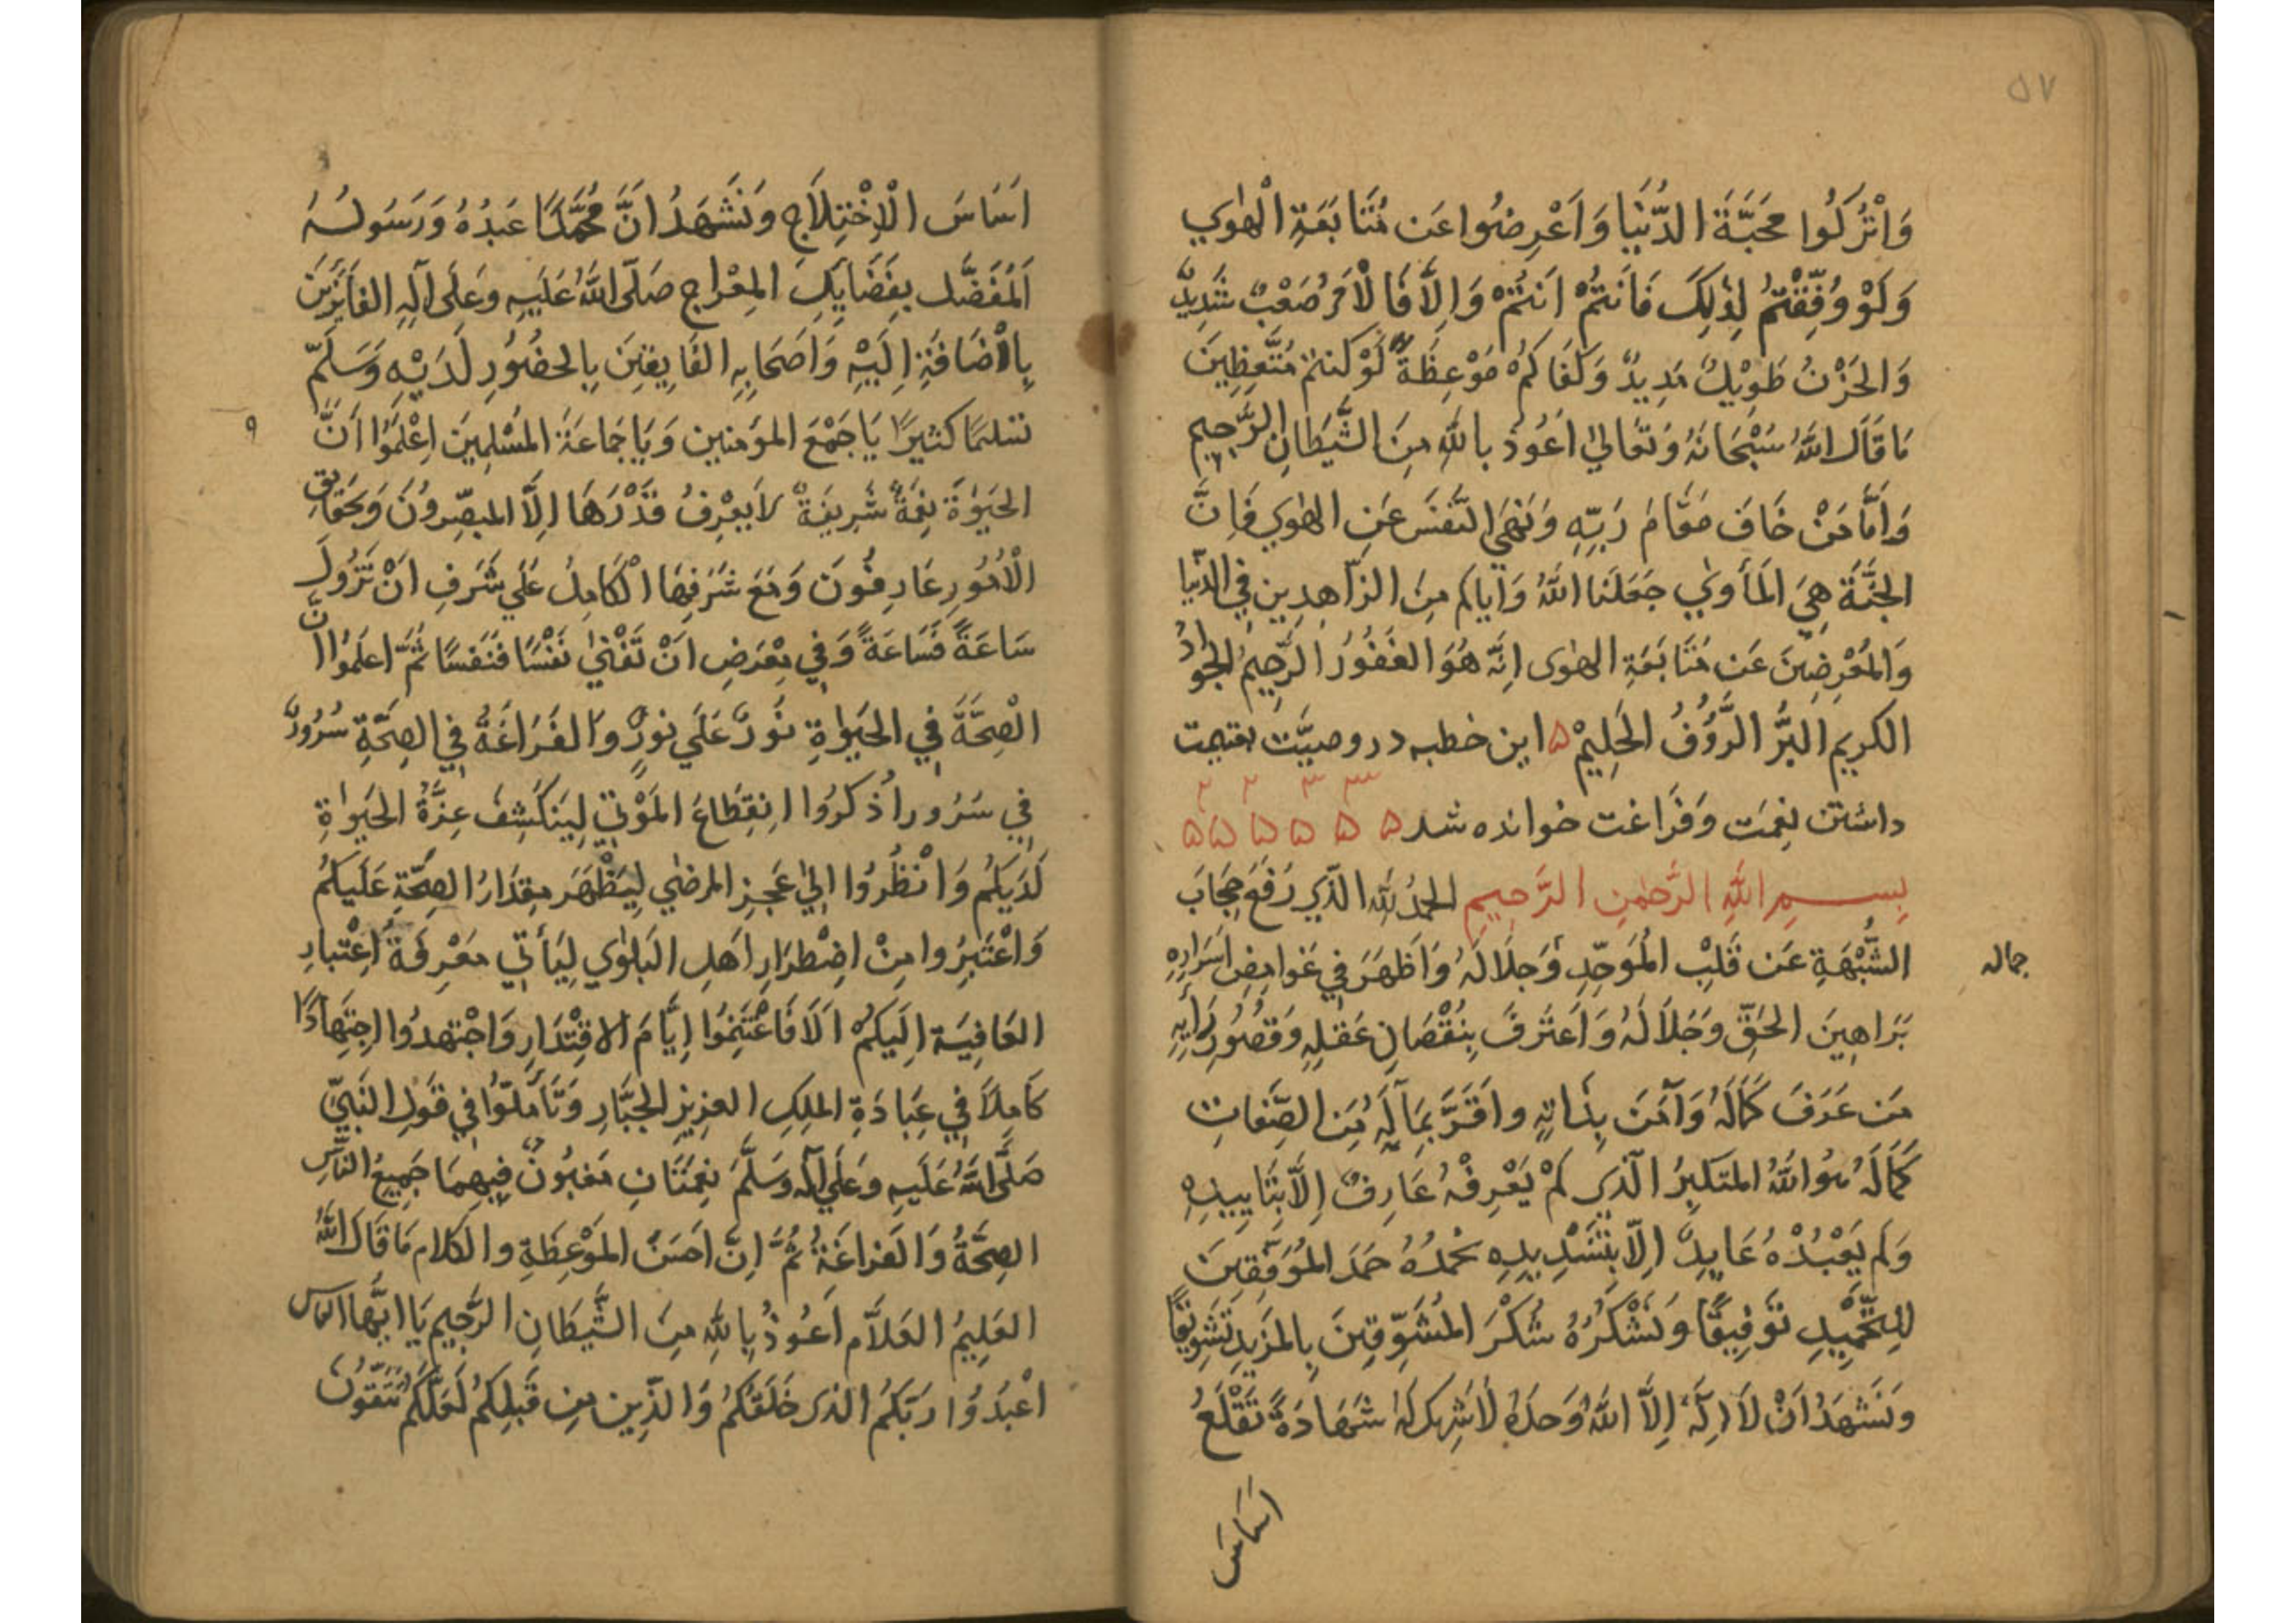 ۵۷
وَاتْرُكُوا مَحَبَّةَ الدُّنْيَا وَاَعْرِضُوا عَن مُتَابَعَةِ الْهَوٰي
وَلَوْ وُفِّقْتُمْ لِذٰلِكَ فَاَنتُمْ اَنتُمْ وَاِلَّا فَالْاَمْرُ صَعْبٌ شَدِيدٌ
وَالحُزْنُ طَوِيْلٌ مَدِيدٌ وَكَفَاكُمْ مَوْعِظَةً لَوْ كُنتُمْ مُتَّعِظِينَ
مَا قَالَ اللّٰهُ سُبْحَانَهُ وَتَعَالىٰ اَعُوذُ بِاللّٰهِ مِنَ الشَّيطَانِ الرَّجِيمِ
وَاَمَّا مَنْ خَافَ مَقَامَ رَبِّهِ وَنَهَي النَّفسَ عَنِ الهَوٰي فَاِنَّ
الجَنَّةَ هِيَ المَأوٰي جَعَلَنَا اللّٰهُ وَاِيَّاكُم مِنَ الزَّاهِدِينَ فِي الدُّنيَا
وَالمُعْرِضِينَ عَن مُتَابَعَةِ الهَوٰى اِنَّه هُوَ الغَفُورُ الرَّحِيمُ الجَوَادُ
الكريم البَرُّ الرَّؤُفُ الحَلِيمْ ۵ اين خطبه در وصيَّت بقيمت
داشتن نِعمَت وَفَرَاغت خوانده شد ۵ ۵ ۵ ۵ ۵ ۵
بِسمِ اللّٰهِ الرَّحمٰنِ الرَّحِيمِ الحَمدُ لِلّٰهِ الَّذي رَفَعَ حِجَابَ
الشُّبْهَةِ عَن قَلْبِ المُوَحِّدِ وَجلَالَهُ وَاَظهَرَ فِي غَوامِضِ اَسْرَارِهِ
جماله
بَرَاهِينَ الحَقِّ وَجَلَالَهُ وَاَعتَرفَ بِنُقْصَانِ عَقلِهِ وَقصُورِ رَأيِهِ
مَن عَرَفَ كَمَالَهُ وَآمَنَ بِذَاتِهِ واَقَرَّ بِمَا لَهُ مِنَ الصِّفاتِ
كَمَالَهُ هُوَ اللّٰهُ المتَكبِرُ الَّذِي لَمْ يَعْرِفْهُ عَارِفٌ اِلَّا بِتَايِيدِهِ
وَلَم يَعْبُدْهُ عَابِدٌ اِلَّا بِتَسْدِيدِهِ نَحْمدُهُ حَمدَ المُوَفَّقِينَ
لِلتَّحْمِيْدِ تَوْفِيقًا وَنَشْكُرُهُ شُكْرَ المُشَوِّقِينَ بِالمَزِيدِ تَشْوِيقًا
وَنَشهَدُ اَنْ لَا اِلٰهَ اِلَّا اللّٰهُ وَحدَهُ لَا شَرِيكَ لَهُ شَهَادَةً تَقْلَعُ
اَسَاسَ
اَسَاسَ الْاِخْتِلَاجِ وَنَشْهَدُ انَّ مُحَمَّدًا عَبدُهُ وَرَسُولُهُ
اَلْمُفَضَّل بِفَضَايِلِ المِعْرَاجِ صَلَّى اللّٰهُ عَلَيهِ وَعَلَى آلِهِ الفَائِزينَ
بِالْاضَافَةِ اِلَيْهِ وَاَصحَابِهِ الفَايِقِينَ بِالحضُورِ لَدَيْهِ وَسَلَّمَ
تسليمًا كثِيرًا يَا جَمْعَ المؤمِنين وَيَا جَمَاعَةَ المُسْلِمِينَ اِعْلَمُوا اَنَّ
الحَيٰوةَ نِعمَةٌ شَرِيفَةٌ لَا يَعْرِفُ قَدْرَهَا اِلَّا المبصِرُونَ وَبحَقَايِقِ
الْاُمُورِ عَارِفُونَ وَمَعَ شَرَفِهَا الْكَامِلُ عَلَي شَرَفِ اَنْ تَزُولَ
سَاعَةً فَسَاعَةً وَفِي مَعْرَضِ اَنْ تَفْنىٰ نَفْسًا فَنَفسًا ثُمَّ اعلَمُوا انَّ
الصِّحَّةَ فِي الحَيٰوةِ نُورٌ عَلَي نُورٍ وَالفَرَاغَةُ فِي الصِحَّةِ سُرُورٌ
فِي سُرُور اُذكُرُوا انقِطَاعَ المَوْتٰي لِيَنكَشِفَ عِزَّةُ الحَيٰوةِ
لَدَيكُم وَانْظُرُوا اِلىٰ عَجزِ المرضٰي لِيَظْهَرَ مِقدَارُ الصِحَّةِ عَلَيكُمُ
وَاعْتَبِرُوا مِنْ اضْطِرَارِ اَهلِ البَلوٰي لِيَأتِي مَعْرِفَةُ اعْتبارِ
العَافِيَةِ اِلَيكُمْ اَلَا فَاغْتَنِمُوا اَيَّامَ الاقْتِدَارِ وَاجْتهِدُوا اجتِهَادًا
كَامِلًا فِي عِبَادَةِ المَلِكِ العزِيزِ الجَبَّارِ وَتَأَمَّلُوا فِي قَولِ النَّبِيِّ
صَلَّي اللّٰهُ عَلَيهِ وَعَلَي آلِهِ وَسَلَّمَ نِعمَتَانِ مَغبُونٌ فِيهِمَا جَمِيعُ النَّاسِ
الصِحَّةُ وَالفَراغَةُ ثُمَّ اِنَّ اَحسَنَ المَوْعِظَةِ والكلام مَا قَالَ اللّٰهُ
العَلِيمُ العَلَّام اَعُوذُ بِاللّٰهِ مِنَ الشَّيطَانِ الرَّجِيم يَا ايُّهَا النَّاسُ
اعْبُدُوا رَبَّكُمُ الَّذِي خَلَقَكُمْ وَالَّذِينَ مِن قَبلِكُمْ لَعَلَّكُمْ تَتَّقُونَ